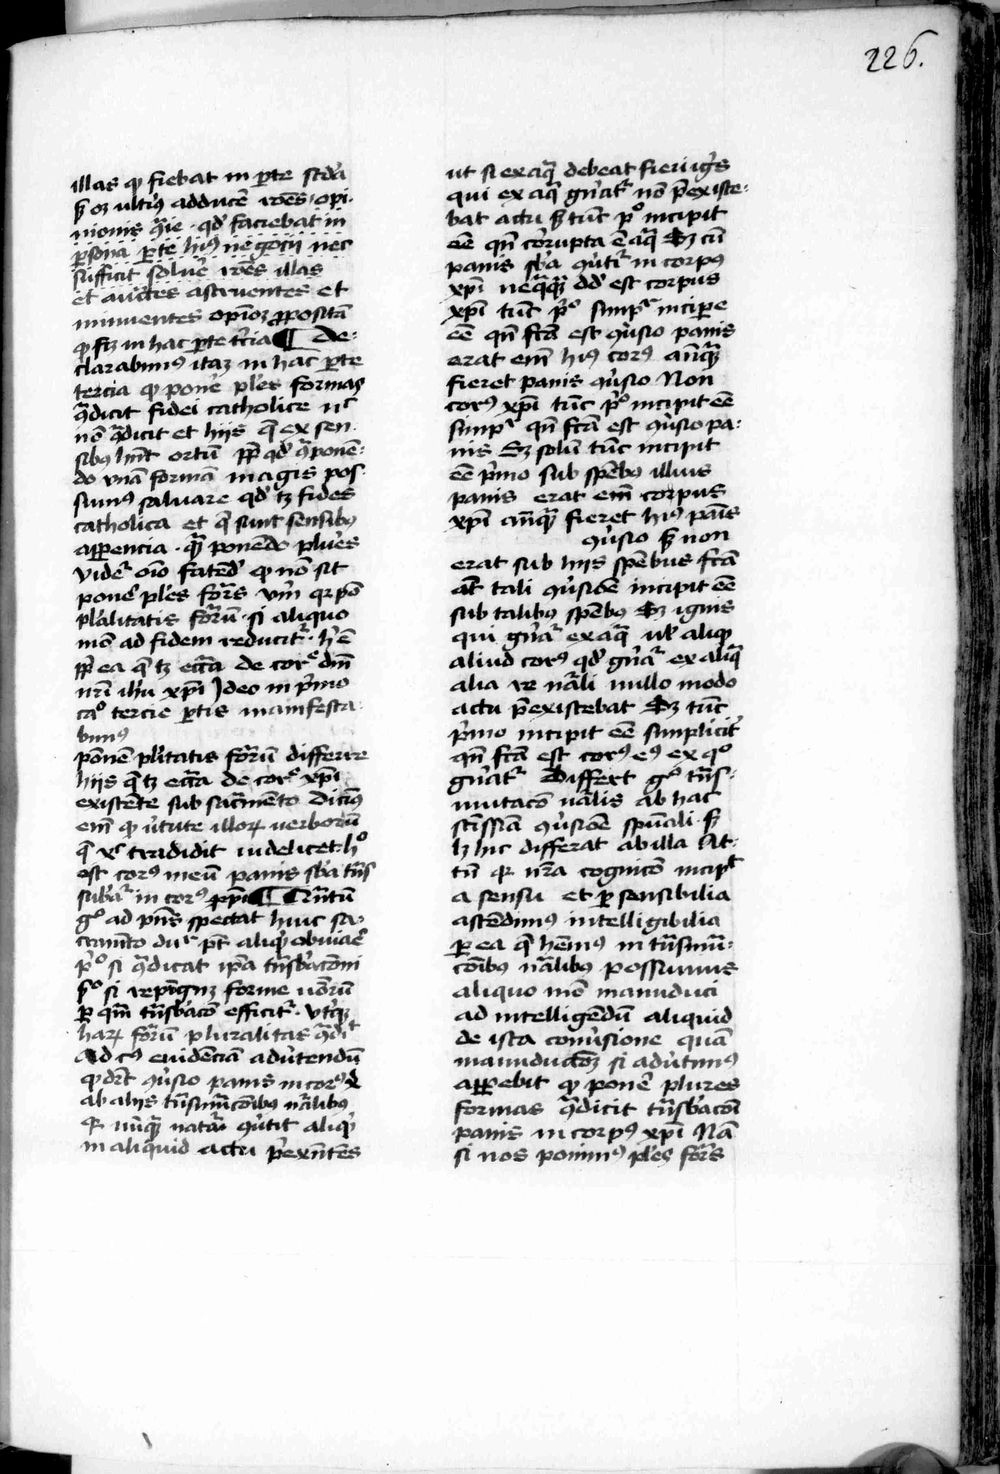 226.
illas qᷓ fiebat in ꝑte scđa
ꝫ oꝫ ultiꝰ adducẽ rões opi-
nionis ꝗ̃ie · qđ faciebat in
ꝑsona ꝑte huiꝰ negocii nec
sufficit solue᷑ rões illas
et auctes astruentes et
innuentes opioꝫ ꝓpositã
ꝙ fit in hac ꝑte tercia ¶ De-
clarabimꝰ itaꝫ in hac ꝑte
tercia ꝙ pone᷑ ples formas
ꝗ̃dicit fidei catholice nc̃
nõ ꝗ̃dicit et hiis q̃ ex sen-
sibꝰ hñt ortũ ꝓp̃ qđ ꝗ̃ ponen-
do vnã formã magis pos-
sumꝰ saluare qđ tꝫ fides
catholica et q̃ sunt sensibꝰ
apparencia · ꝗ̃ ponẽdo plures
videt᷑ oĩo fatend᷑ ꝙ nõ sit
pone᷑ ples for̃s vñ qꝛ põ
plalitatis for̃ũ · si aliquo
mõ ad fidem reducit᷑ · h̾ ẽ
ꝓp̃ ea q̃ tꝫ ecc̃a de corꝑe dñi
nr̃i ihũ xp̃i Ideo in p̾mo
caº tercie ꝑtis manifesta-
bimꝰ
ponẽ pl̃itatis for̃ũ differre
hiis q̃ tꝫ ecc̃a de corꝑe xp̃i
existẽte sub sacr̃mento Dicimꝰ
em̃ ꝙ virtute illoꝝ verborũ
q̃ xp̃c tradidit videlicet · hº
est corꝰ meũ panis sb̃a tñs
sub̃at᷑ in corꝰ xp̃i ¶ Qñtũ
gº ad pñs spectat huic sa-
cramẽto du᷑ pñt aliqᷓ obviare᷑
pº si ꝗ̃dicat ip̃a tñsb̃acõni
sº si repugnꝫ forme nõrũ
ꝑ qm̃ tñsb̃acõ efficit᷑ · vtꝫ
haꝝ for̃ũ pluralitas ꝗ̃dic̃t
ad cꝰ euidẽciã aduẽtendũ
ꝙ drt̃ ꝗ̾sio panis in corꝰ x̃
ab aliis tñsmutcõibꝰ nãlibꝰ
qꝛ nũꝗ̃ natãl ꝗ̾tit aliqᷓ
in aliquid actu p̃exñtes
ut si ex aq̃ debeat fieri ignis
qui ex aq̃ gñat᷑ nõ p̃existe-
bat actu sꝫ tũc pº incipit
eẽ qñ corupta ẽ aq̃ Sꝫ cũ
panis sb̃a ꝗ̾tit᷑ in corpꝰ
xp̃i neꝗ̃ꝗ̃ dd᷑ est corpus
xp̃i tũc pº simp᷑r incipere
eẽ qñ fc̃a est ꝗ̾sio panis
erat em̃ hiꝰ corꝰ añꝗ̃
fieret panis ꝗ̾sio Non
corꝰ xp̃i tũc pº incipit eẽ
simp᷑r qñ fc̃a est ꝗ̾sio pa-
nis Sꝫ solũ tũc incipit
eẽ p̾mo sub sp̃ebꝰ illius
panis erat em̃ corpus
xp̃i añꝗ̃ fieret hiꝰ pãis
ꝗ̾sio sꝫ non
erat sub hiis sp̃ebus fc̃a
aũt tali ꝗ̾sioẽ incipit eẽ
sub talibꝰ sp̃ebꝰ Sꝫ ignis
qui gñat᷑ ex aq̃ ul̾ aliqᷓ
aliud corꝰ qđ gñat᷑ ex aliq̃
alia re nãli nullo modo
actu p̃existebat Sꝫ tũc
p̾mo incipit eẽ simplicit᷑
qñ fc̃a est corꝰ eꝰ ex qº
gñat᷑ Differt gº tñs-
mutacõ nãlis ab hac
sc̃issiã ꝗ̾sioẽ sp̃uali · sꝫ
lꝫ hic differat ab illa At-
tñ qꝛ nr̃a cognicõ incip̃t
a sensu et ꝑ sensibilia
ascẽdimꝰ intelligibilia
ꝑ ea q̃ hẽmꝰ in tñsmu-
tcõibꝰ nãlibꝰ possumus
aliquo mõ manuduci
ad intelligẽdũ aliquid
de ista conũsione quã
manuductõꝫ si aduertimꝰ
apparebit ꝙ pone᷑ plures
formas ꝗ̃dicit tñsb̃acõi
panis in corpꝰ xp̃i Nã
si nos ponimꝰ ples for̃s